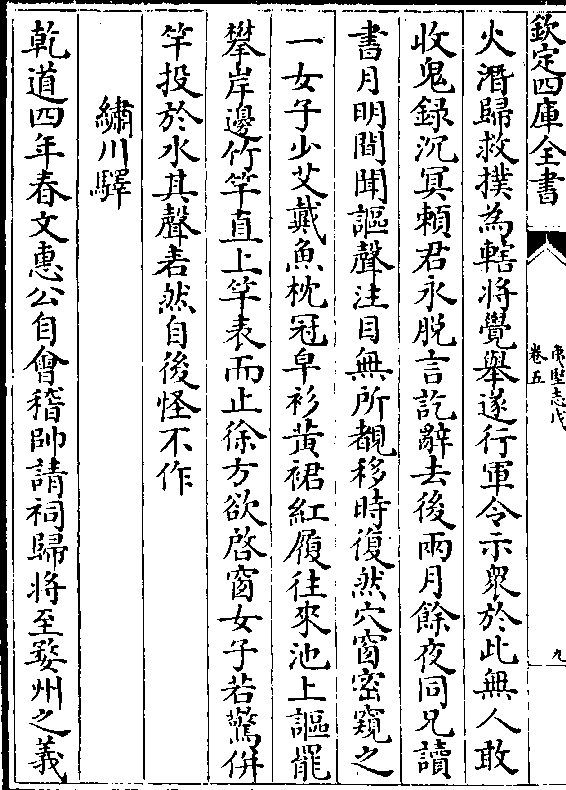 欽定四庫全書
夷堅志戊
卷五
九
火潛歸救撲為轄將覺舉遂行軍令示衆於此無人敢
收鬼錄沉冥頼君永脱言訖辭去後兩月餘夜同兄讀
書月明間聞謳聲注目無所覩移時復然穴窗密窺之
一女子少艾戴魚枕冠皁衫黄裙紅履往來池上謳罷
攀岸邊竹竿直上竿表而止徐方欲啓窗女子若驚併
竿投於水其聲砉然自後怪不作
繡川驛
乾道四年春文惠公自會稽帥請祠歸將至婺州之義